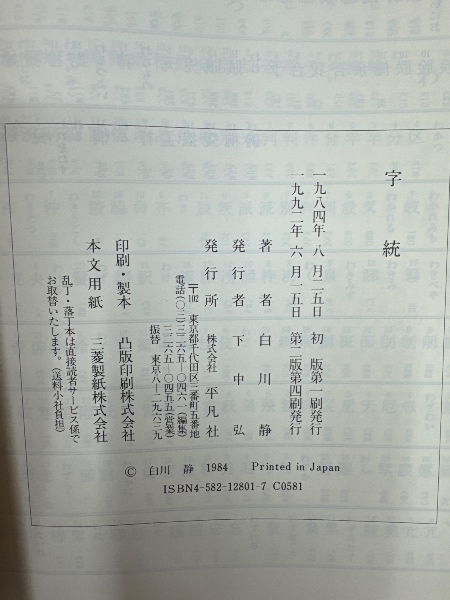 字統
一九八四年 八月二五日 初版第一刷発行
一九九二年 六月一五日 第二版第四刷発行
著者 白川静
発行者 下中弘
発行所 株式会社 平凡社
〒102 東京都千代田区三番町五番地
電話(〇三)三二六五―〇四六一(編集)
三二六五―〇四五五(営業)
振替 東京八―二九六三九
印刷・製本 凸版印刷株式会社
本文用紙 三菱製紙株式会社
乱丁・落丁本は直接読者サービス係で
お取替いたします。(送料小社負担)
© 白川 静 1984 Printed in Japan
ISBN4-582-12801-7 C0581